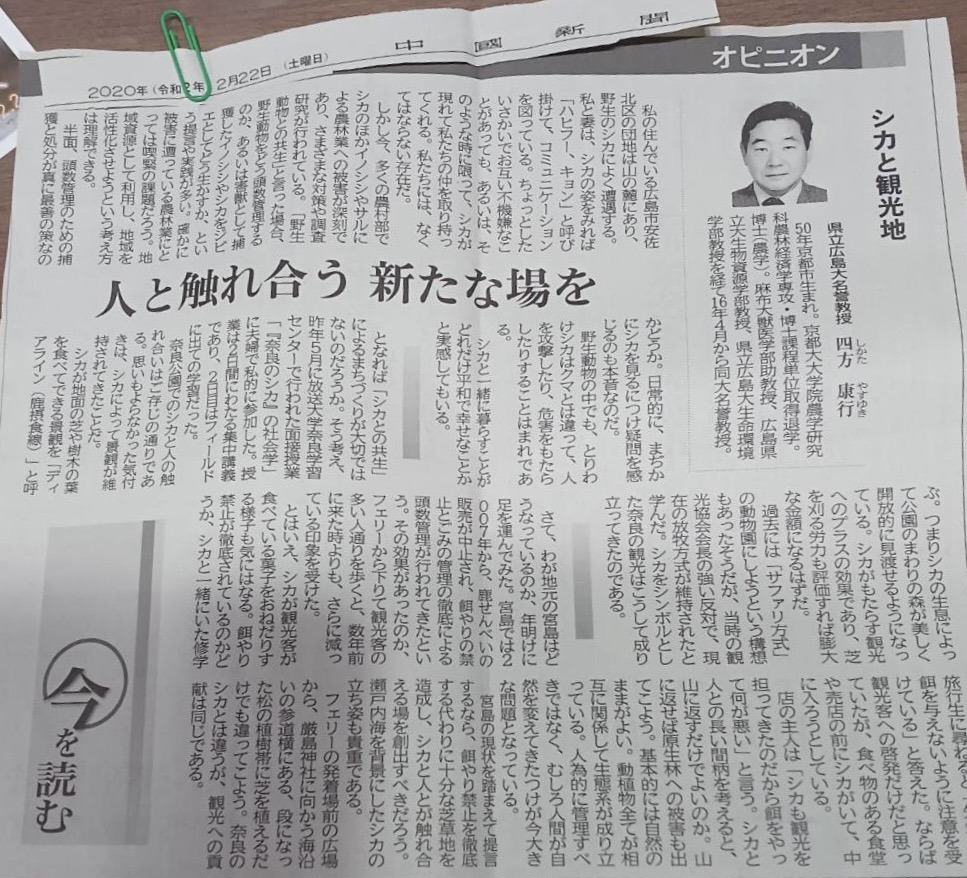 中國新聞
オピニオン
2020年(令和2年) 2月22日 (土曜日)
シカと観光地
県立広島大名誉教授 四方 康行
しかた やすゆき
50年京都市生まれ。京都大大学院農学研究
科農林経済学専攻・博士課程単位取得退学。
博士(農学)。麻布大獣医学部助教授、広島県
立大生物資源学部教授、県立広島大生命環境
学部教授を経て16年4月から同大名誉教授。
人と触れ合う 新たな場を
私の住んでいる広島市安佐
北区の団地は山の麓にあり、
野生のシカによく遭遇する。
私と妻は、シカの姿をみれば
「ハヒラー、キョン」と呼び
掛けて、コミュニケーション
を図っている。ちょっとした
いさかいでお互い不機嫌なこ
とがあっても、あるいは、そ
のような時に限って、シカが
現れて私たちの仲を取り持っ
てくれる。私たちには、なく
てはならない存在だ。
しかし今、多くの農村部で
シカのほかイノシシやサルに
よる農林業への被害が深刻で
あり、さまざまな対策や調査
研究が行われている。「野生
動物との共生」と言った場合、
野生動物をどう頭数管理する
のか、あるいは害獣として捕
獲したイノシシやシカをジビ
エとしてどう生かすか、とい
う提言や実践が多い。確かに
被害に遭っている農林業にと
っては喫緊の課題だろう。地
域資源として利用し、地域を
活性化させようという考え方
は理解できる。
半面、頭数管理のための捕
獲と処分が真に最善の策なの
かどうか。日常的に、まぢか
にシカを見るにつけ疑問を感
じるのも本音なのだ。
野生動物の中でも、とりわ
けシカはクマとは違って、人
を攻撃したり、危害をもたら
したりすることはまれであ
る。
シカと一緒に暮らすことが
どれだけ平和で幸せなことか
と実感してもいる。
となれば「シカとの共生」
によるまちづくりが大切では
ないのだろうか。そう考え、
昨年5月に放送大学奈良学習
センターで行われた面接授業
「『奈良のシカ』の社会学」
に夫婦で私的に参加した。授
業は2日間にわたる集中講義
であり、2日目はフィールド
に出ての学習だった。
奈良公園でのシカと人の触
れ合いはご存じの通りであ
る。思いもよらなかった気付
きは、シカによって景観が維
持されてきたことだ。
シカが地面の芝や樹木の葉
を食べてできる景観を「ディ
アライン(鹿摂食線)」と呼
ぶ。つまりシカの生息によっ
て公園のまわりの森が美しく
開放的に見渡せるようになっ
ている。シカがもたらす観光
へのプラスの効果であり、芝
を刈る労力も評価すれば膨大
な金額になるはずだ。
過去には「サファリ方式」
の動物園にしようという構想
もあったそうだが、当時の観
光協会会長の強い反対で、現
在の放牧方式が維持されたと
学んだ。シカをシンボルとし
た奈良の観光はこうして成り
立ってきたのである。
さて、わが地元の宮島はど
うなっているのか、年明けに
足を運んでみた。宮島では2
007年から、鹿せんべいの
販売が中止され、餌やりの禁
止とごみの管理の徹底による
頭数管理が行われてきたとい
う。その効果があったのか、
フェリーから下りて観光客の
多い人通りを歩くと、数年前
に来た時よりも、さらに減っ
ている印象を受けた。
とはいえ、シカが観光客が
食べている菓子をおねだりす
る様子も気にはなる。餌やり
禁止が徹底されているのかど
うか、シカと一緒にいた修学
旅行生に尋ねると
餌を与えないように注意を受
けている」と答えた。ならば
観光客への啓発だけだと思っ
ていたが、食べ物のある食堂
や売店の前にシカがいて、中
に入ろうとしている。
店の主人は「シカも観光を
担ってきたのだから餌をやっ
て何が悪い」と言う。シカと
人との長い間柄を考えると、
山に返すだけでよいのか。山
に返せば原生林への被害も出
てこよう。基本的には自然の
ままがよい。動植物全てが相
互に関係して生態系が成り立
っている。人為的に管理すべ
きではなく、むしろ人間が自
然を変えてきたつけが今大き
な問題となっている。
宮島の現状を踏まえて提言
するなら、餌やり禁止を徹底
する代わりに十分な芝草地を
造成し、シカと人とが触れ合
える場を創出すべきだろう。
瀬戸内海を背景にしたシカの
立ち姿も貴重である。
フェリーの発着場前の広場
から、厳島神社に向かう海沿
いの参道横にある、段になっ
た松の植樹帯に芝を植えるだ
けでも違ってこよう。奈良の
シカとは違うが、観光への貢
献は同じである。
今を読む